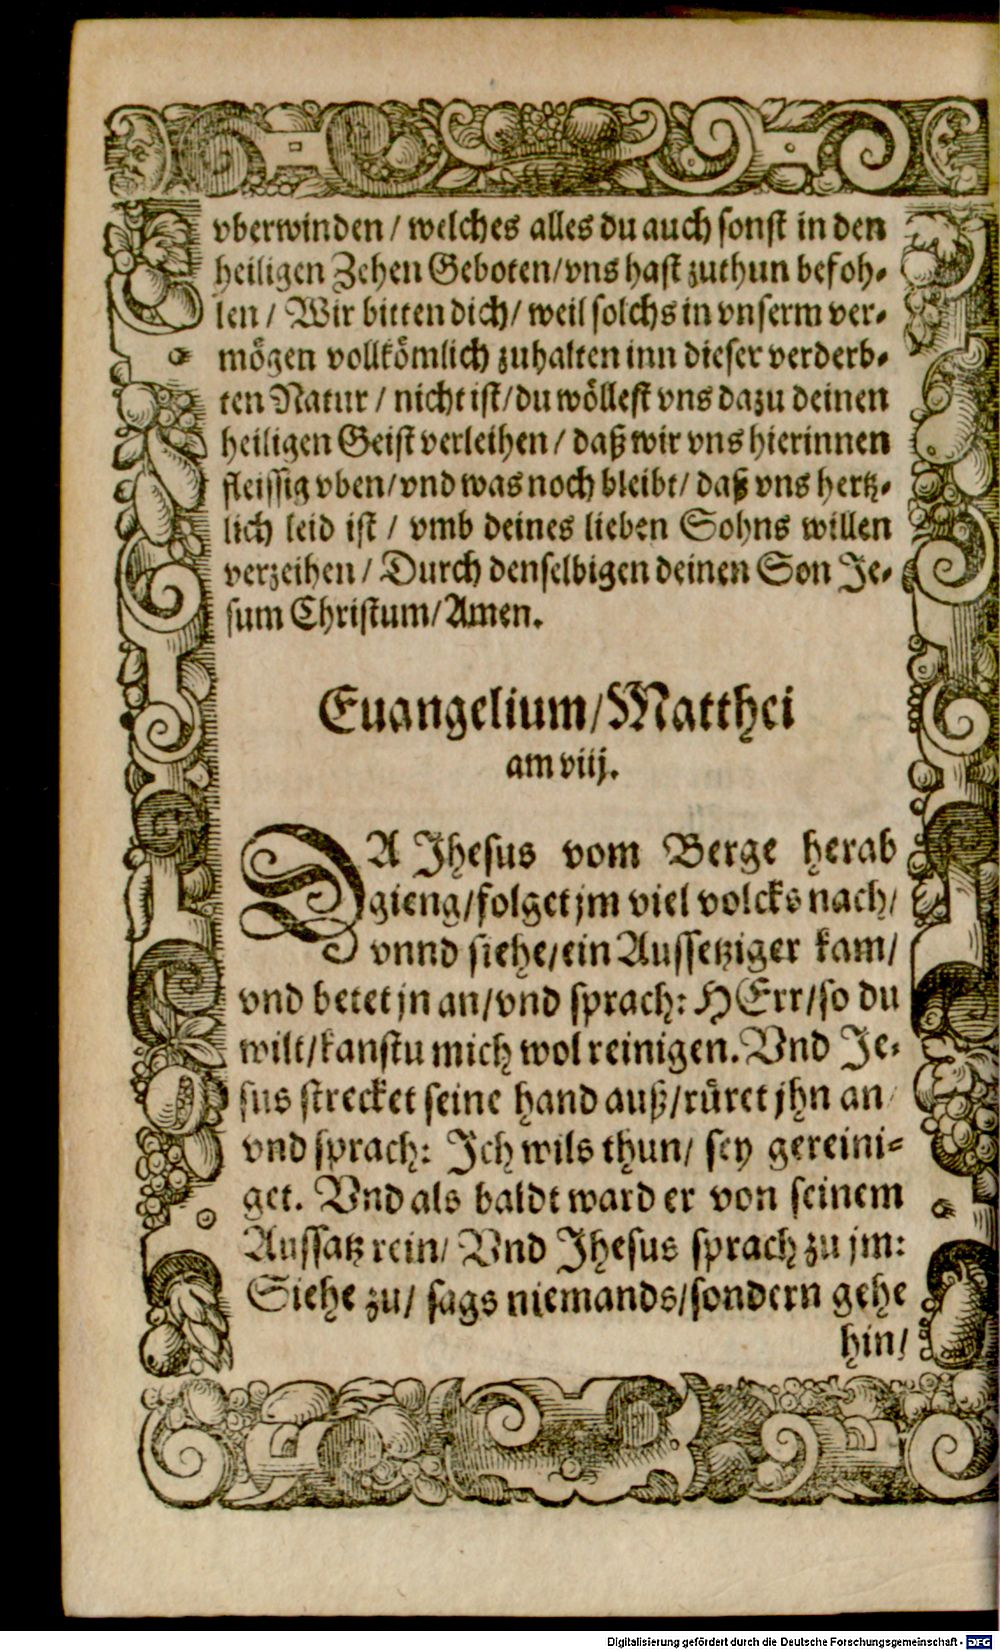 vberwinden / welches alles du auch sonst in den
heiligen Zehen Geboten/vns hast zuthun befoh-
len / Wir bitten dich/ weil solchs in vnserm ver-
mögen vollkömlich zuhalten inn dieser verderb-
ten Natur / nicht ist/du wöllest vns dazu deinen
heiligen Geist verleihen / daß wir vns hierinnen
fleissig vben/vnd was noch bleibt/ daß vns hertz-
lich leid ist / vmb deines lieben Sohns willen
verzeihen / Durch denselbigen deinen Son Je-
sum Christum/Amen.
Euangelium/Matthei
am viij.
DA Jhesus vom Berge herab
gieng/folget jm viel volcks nach/
vnnd siehe/ein Aussetziger kam/
vnd betet jn an/vnd sprach: HErr/so du
wilt/kanstu mich wol reinigen. Vnd Je-
sus strecket seine hand auß/rüret jhn an/
vnd sprach: Ich wils thun/ sey gereini-
get. Vnd als baldt ward er von seinem
Aussatz rein/ Vnd Jhesus sprach zu jm:
Siehe zu/ sags niemands/sondern gehe
hin/
Digitalisierung gefördert durch die Deutsche Forschungsgemeinschaft - DFG